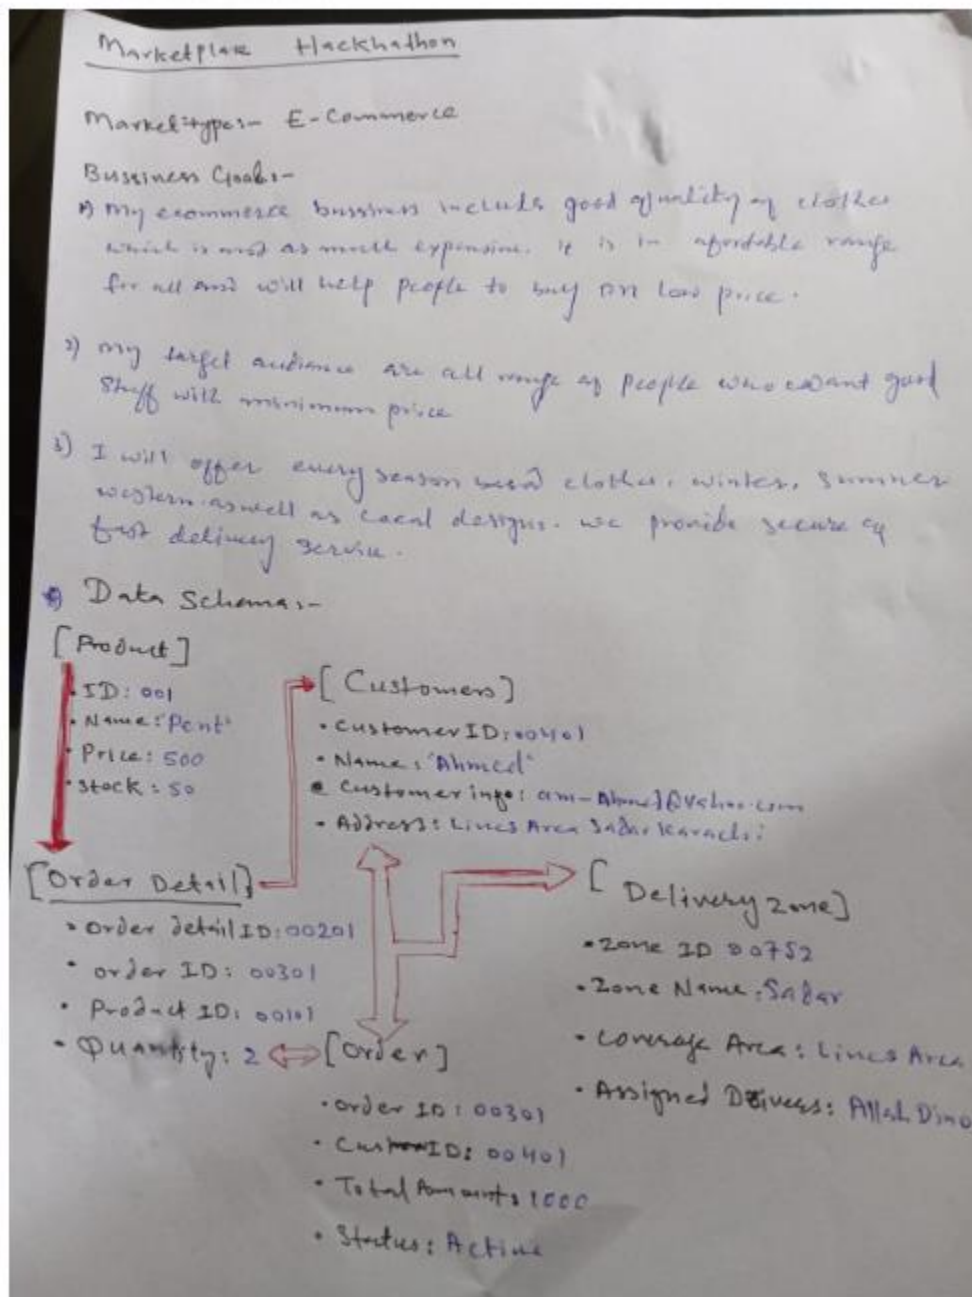 Marketplace Hackhathon
Market types:- E-Commerce
Bussiness Goals:-
1) My ecommerce bussiness include good quality of clothes
which is not as much expensive. it is in afordable range
for all and will help people to buy on low price.
2) my target audience are all range of people who want good
stuff with minimum price
3) I will offer every season clothes, winter, summer
western aswell as local designs. we provide secure
fast delivery service.
Data Schema:-
[Product]
• ID: 001
• Name: 'Pent'
• Price: 500
• Stock: 50
[Customers]
• Customer ID: 00401
• Name: 'Ahmed'
• Customer info:
• Address: Lines Area Sadar Karachi
[Order Detail]
• Order detail ID: 00201
• order ID: 00301
• Product ID: 00101
• Quantity: 2
[Delivery Zone]
• Zone ID 00752
• Zone Name: Sadar
• Coverage Area: Lines Area
• Assigned Drivers: Allah Dino
[Order]
• order ID: 00301
• ID: 00401
• Total Amount: 1000
• Status: Active